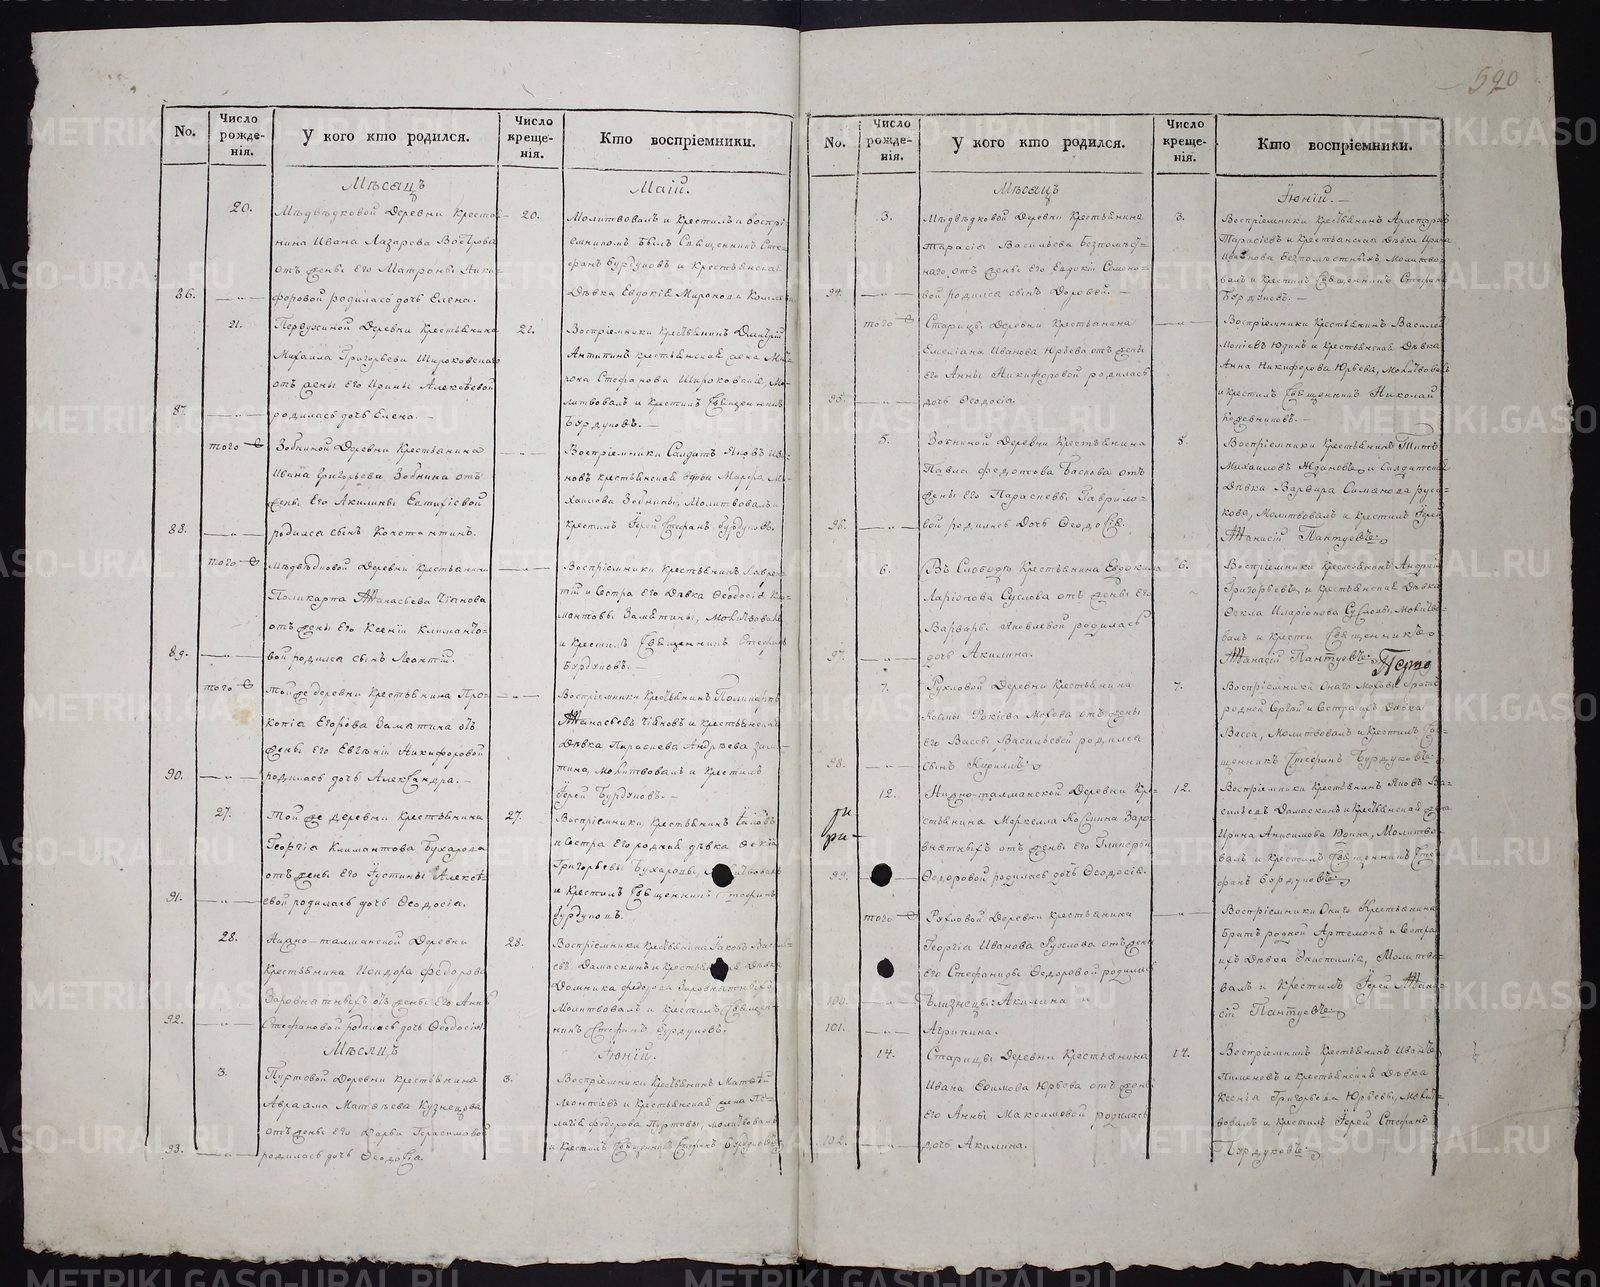 590
No.
Число рожде-нія.
У кого кто родился.
Число креще-нія.
Кто воспріемники.
Мѣсяцъ
Маій.
20.
Мѣдвѣдковой Деревни Кресть-
нина Ивана Лазарева Вострова
отъ жены его Матроны Ники-
86.
форовой родилась дочь Елена.
20.
Молитвовалъ и Крестилъ и воспрі-
емникомъ былъ Священникъ Сте-
фанъ Бурдуковъ и Крестьянская
Дѣвка Евдокія Миронова
21.
Деревни Крестьянина
Михаила Григорьева Широковскаго
отъ жены его Ирины Алексѣевой
87.
родилась дочь Елена. -
21.
Воспріемники Крестьянинъ Дмитрій
Антипинъ крестьянская жена
Стефанова Широковскіе, Мо-
литвовалъ и Крестилъ Священникъ
Бурдуковъ. -
того ж
Зобниной Деревни Крестьянина
Ивана Григорьева Зобнина отъ
жены Его Акилины Евтифіевой
88.
родился сынъ Константинъ.
Воспріемники Солдатъ Яковъ Ива-
новъ крестьянская вдова Марфа Ми-
хаилова Зобнины, Молитвовалъ и
Крестилъ Іерей Стефанъ Бурдуковъ.
того ж
Мѣдвѣдковой Деревни Крестьянина
Поликарпа Аѳанасьева
отъ жены Его Ксеніи Климанто-
89.
вой родился сынъ Леонтій.
Воспріемники Крестьянинъ Лаврен-
тій и Сестра его Дѣвка Ѳеодосія Кли-
мантовы Заматины, Молитвовалъ
и Крестилъ Священникъ Стефанъ
Бурдуковъ. -
того ж
Той же деревни Крестьянина Про-
копія Егорова Заматина отъ
жены его Евгеніи Никифоровой
90.
родилась дочь Александра. -
Воспріемники Крестьянинъ Поликарпъ
Аѳанасьевъ и крестьянская
Дѣвка Параскева Андрѣева Зама-
тина, молитвовалъ и Крестилъ
Іерей Бурдуковъ. -
27.
Той же деревни Крестьянина
Георгія Климантова Бухарова
отъ жены Его Іустины Алексѣ-
91.
евой родилась дочь Ѳеодосія.
27.
Воспріемники, Крестьянинъ Іаковъ
и Сестра Его родная дѣвка Ѳекла
Григорьевы Бухаровы, Молитвовалъ
и Крестилъ Священникъ Стефанъ
Бурдуковъ.
28.
Нижно-талманской Деревни
Крестьянина Исидора Федорова
Заровнатныхъ отъ жены Его Анны
92.
Стефановой родилась дочь Ѳеодосія.
28.
Воспріемники Крестьянинъ Іаковъ Василь-
евъ Дамаскинъ и Крестьянская Дѣвка
Домника Федорова Заровнатныхъ
Молитвовалъ и Крестилъ Священ-
никъ Стефанъ Бурдуковъ.
Мѣсяцъ
Іюній.
3.
Пуртовой Деревни Крестьянина
Авраама Матвѣева Кузнецова
отъ жены Его Дарьи Герасимовой
93.
родилась дочь Ѳеодосія.
3.
Воспріемники Крестьянинъ Матвѣй
Леонтіевъ и Крестьянская жена Пе-
лагія Федорова Пуртовы, молитвовалъ
и Крестилъ Священникъ Стефанъ Бурдуковъ
No.
Число рожде-нія.
У кого кто родился.
Число креще-нія.
Кто воспріемники.
Мѣсяцъ
Іюній. -
3.
Мѣдвѣдковой Деревни Крестьянина
Тарасія Васильева Безпомѣст-
наго, отъ жены Его Евдокіи Семено-
94.
вой родился сынъ Дорофей. -
3.
Воспріемники Крестьянинъ Аристархъ
Тарасіевъ и Крестьянская Дѣвка Ирина
Иванова Безпомѣстныхъ, Молитво-
валъ и Крестилъ Священникъ Стефанъ
Бурдуковъ. -
того ж
Старицы Деревни Крестьянина
Емеліана Иванова Юрьева отъ жены
Его Анны Никифоровой родилась
95.
дочь Ѳеодосія.
Воспріемники Крестьянинъ Василей
Юдинъ и Крестьянская Дѣвка
Анна Никифорова Юрьева, Молитвовалъ
и Крестилъ Священникъ Николай
Кожевниковъ. -
5.
Зобниной Деревни Крестьянина
Павла Федотова отъ
жены Его Парасковьи Гаврило-
96.
вой родилась Дочь Ѳеодосія.
5.
Воспріемники Крестьянинъ Титъ
Михаиловъ и Солдатская
Дѣвка Варвара Симанова Руса-
кова, Молитвовалъ и Крестилъ Іерей
Аѳанасій Пантуевъ.
6.
Въ Слободѣ Крестьянина Евдокима
Ларіонова Суслова отъ жены Его
Варвары Яковлевой родилась
97.
дочь Акилина.
6.
Воспріемники Крестьянинъ Андрей
Григорьевъ, и Крестьянская Дѣвка
Ѳекла Иларіонова Сусловы, Молитво-
валъ и Крестилъ Священникъ
Аѳанасій Пантуевъ.
7.
Рухловой Деревни Крестьянина
Мохова отъ жены
Его Вассы Васильевой родился
98.
сынъ Кирилъ.
7.
Воспріемники Онаго Мохова братъ
родной Сергѣй и Сестра ихъ Дѣвка
Васса, Молитвовалъ и Крестилъ Свя-
щенникъ Стефанъ Бурдуковъ.
12.
Нижно-талманской Деревни Кре-
стьянина Маркелла Косьмина Заро-
внатныхъ отъ жены Его Гликеріи
99.
Ѳедоровой родилась дочь Ѳеодосія.
12.
Воспріемники Крестьянинъ Яковъ Ва-
сильевъ Дамаскинъ и Крестьянская жена
Ирина Анисимова Юдина, Молитво-
валъ и Крестилъ Священникъ Сте-
фанъ Бурдуковъ.
того ж
Рухловой Деревни Крестьянина
Георгія Иванова Рухлова отъ жены
Его Стефаниды Ѳедоровой родились
100.
Близнецы: Акилина и
101.
Агрипина.
Воспріемники Онаго Крестьянина
Братъ родной Артемонъ и Сестра
ихъ Дѣвка Молитво-
валъ и Крестилъ Іерей Аѳана-
сій Пантуевъ.
14.
Старицы Деревни Крестьянина
Ивана Ефимова Юрьева отъ жены
Его Анны Максимовой родилась
102.
дочь Акилина.
14.
Воспріемникъ Крестьянинъ Иванъ
Пименовъ и крестьянская Дѣвка
Ксенія Григорьева Юрьевы, Молит-
вовалъ и Крестилъ Іерей Стефанъ
Бурдуковъ.
METRIKI.GASO-URAL.RU